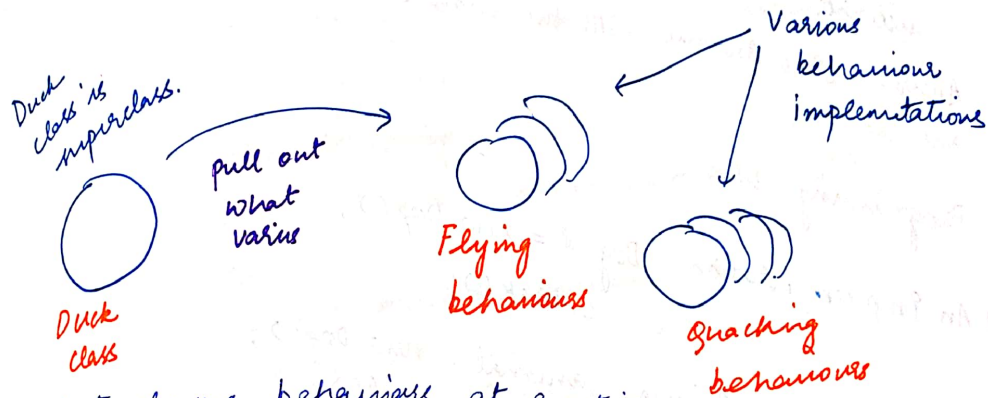 Duck
class is
superclass.
pull out
what
varies
Various
behaviour
implemntations
Duck
class
Flying
behaviours
Quacking
behaviours
behaviour at